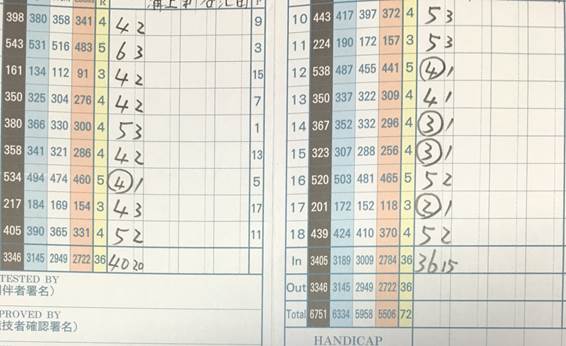 398 380 358 341 4 4 2 9
543 531 516 483 5 6 3 3
161 134 112 91 3 4 2 15
350 325 304 276 4 4 2 7
380 366 330 300 4 5 3 1
358 341 321 286 4 4 2 13
534 494 474 460 5 4 1 5
217 184 169 154 3 4 3 17
405 390 365 331 4 5 2 11
3346 3145 2949 2722 36 40 20
TESTED BY
伴者署名)
PROVED BY
技者確認署名)
10 443 417 397 372 4 5 3
11 224 190 172 157 3 5 3
12 538 487 455 441 5 4 1
13 350 337 322 309 4 4 1
14 367 352 332 296 4 3 1
15 323 307 288 256 4 3 1
16 520 503 481 465 5 5 2
17 201 172 152 118 3 2 1
18 439 424 410 370 4 5 2
In 3405 3189 3009 2784 36 36 15
Out 3346 3145 2949 2722 36
Total 6751 6334 5958 5506 72
HANDICAP